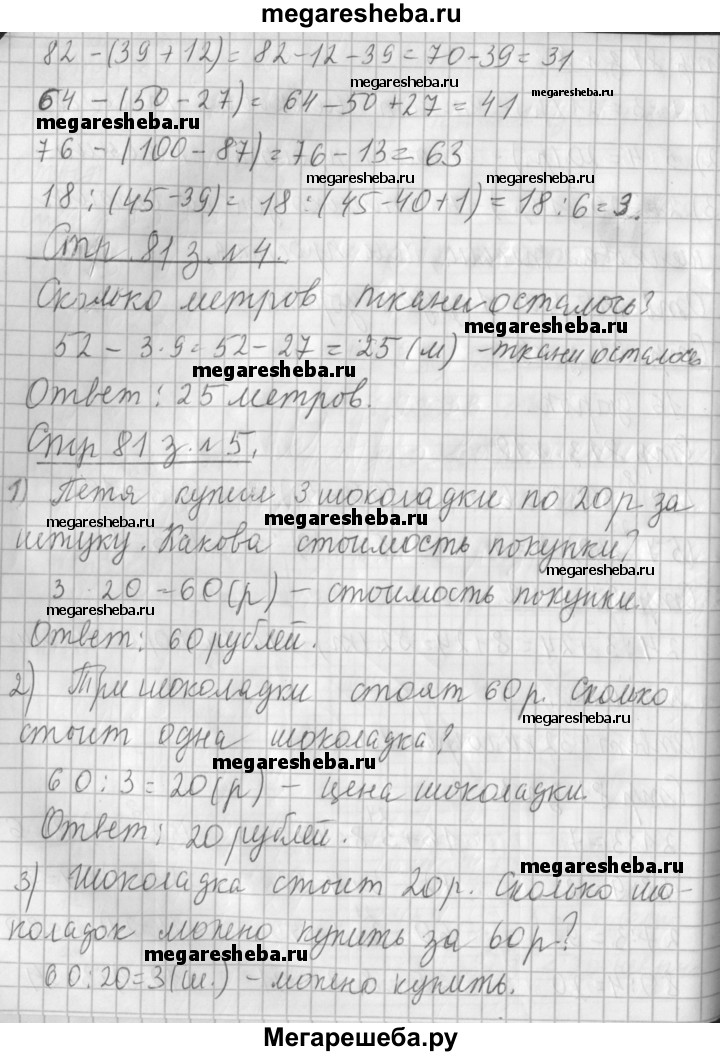 megaresheba.ru
82 - (39 + 12) = 82 - 12 - 39 = 70 - 39 = 31
megaresheba.ru
64 - (50 - 27) = 64 - 50 + 27 = 41 megaresheba.ru
megaresheba.ru
76 - (100 - 87) = 76 - 13 = 63
megaresheba.ru megaresheba.ru
18 : (45 - 39) = 18 : (45 - 40 + 1) = 18 : 6 = 3.
Стр. 81 з. №4.
Сколько метров ткани осталось?
megaresheba.ru
52 - 3·9 = 52 - 27 = 25 (м) - ткани осталось
megaresheba.ru
Ответ: 25 метров.
Стр 81 з. №5.
1) Петя купил 3 шоколадки по 20 р. за
megaresheba.ru megaresheba.ru
штуку. Какова стоимость покупки?
megaresheba.ru
3 · 20 = 60 (р) - стоимость покупки
megaresheba.ru
Ответ: 60 рублей.
2) Три шоколадки стоят 60 р. Сколько
megaresheba.ru
стоит одна шоколадка?
megaresheba.ru
60 : 3 = 20 (р) - цена шоколадки.
Ответ: 20 рублей.
megaresheba.ru
3) Шоколадка стоит 20 р. Сколько шо-
коладок можно купить за 60 р?
megaresheba.ru
60 : 20 = 3 (ш.) - можно купить.
Мегарешеба.ру